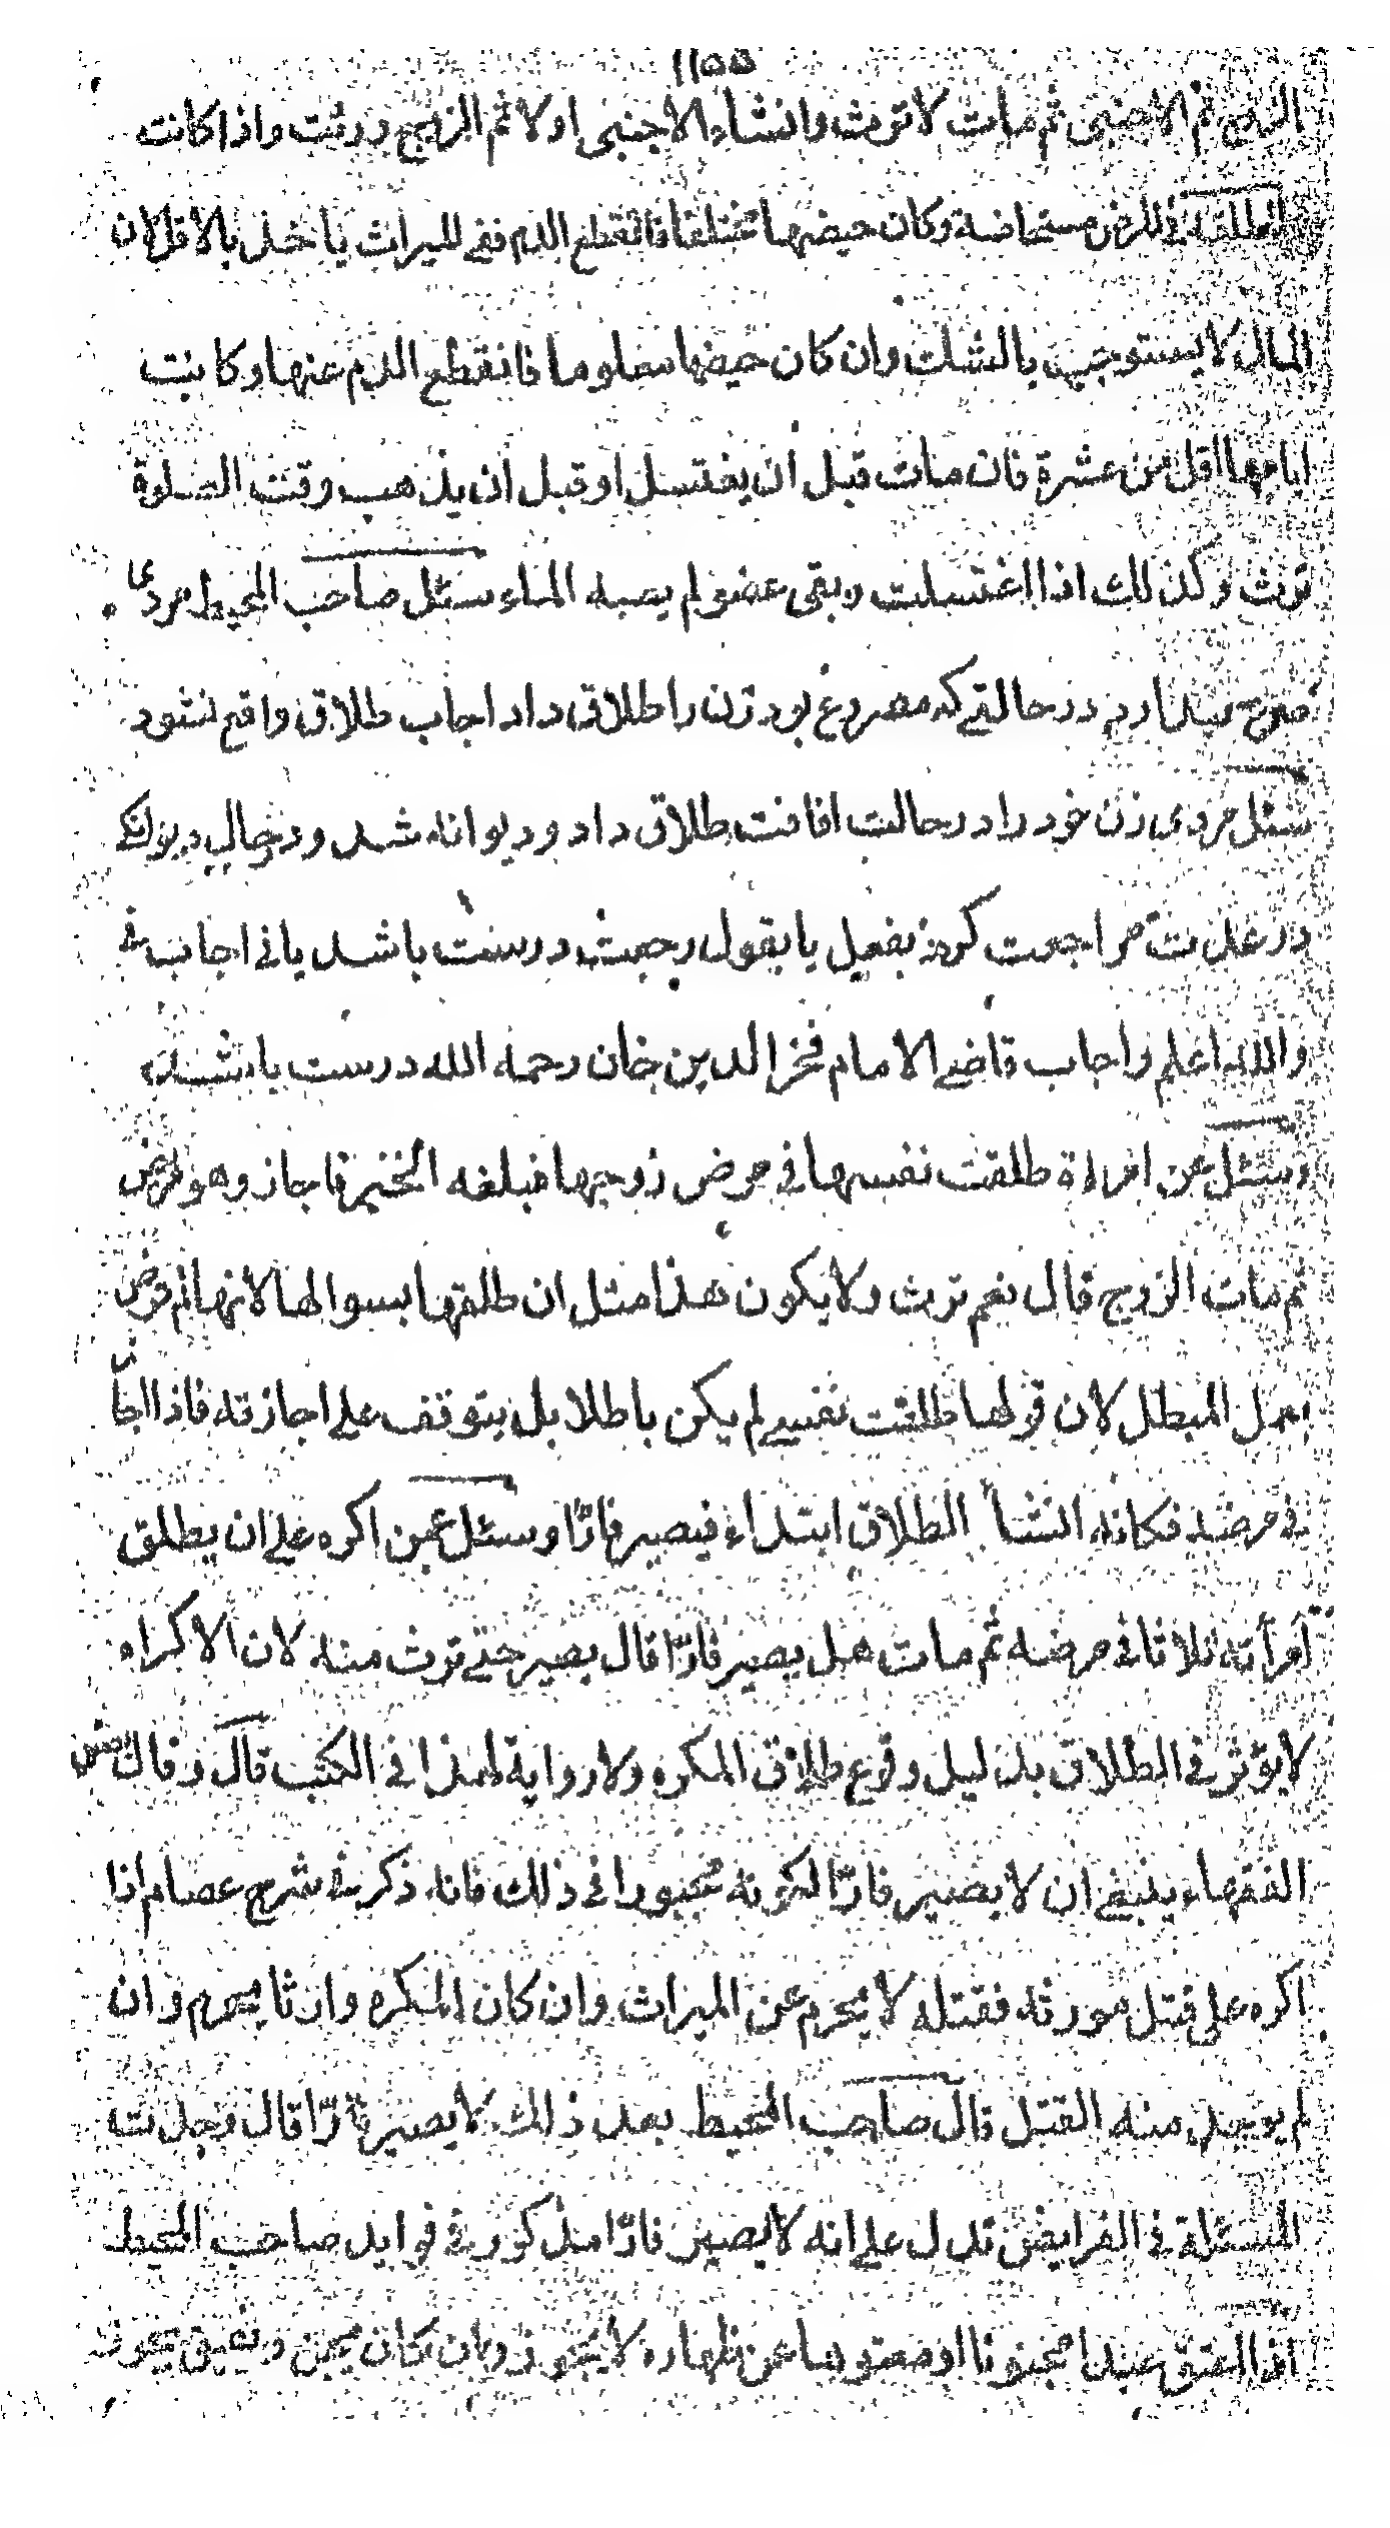 ١١٥٥
الزوج ثم الاجنبى ثم مات لا ترث وانشاء الاجنبى اولا ثم الزوج ورثت واذا كانت
المطلقة فى المرض مستحاضة وكان حيضها مختلفا فانقطع الدم ففى الميراث ياخذ بالاقل لان
المال لا يستوجبها بالشك وان كان حيضها معلوما فانقطع الدم عنها وكانت
ايامها اقل من عشرة فان مات قبل ان يغتسل او قبل ان يذهب وقت الصلوة
ترث وكذلك اذا اغتسلت وبقى عضو لم يصبه الماء سئل صاحب المحيط مردى
صرع ميدارد درحالتے كه مصروع بود زن را طلاق داد اجاب طلاق واقع نشود
سئل مردى زن خود را درحالت افاقت طلاق داد وديوانه شد ودرحال ديوانكے
درعدت مراجعت كرد بفعل يا بقول رجعت درست باشد يا نے اجاب نے
والله اعلم واجاب قاضے الامام فخر الدين خان رحمه الله درست باشد
وسئل عن امراة طلقت نفسها فى مرض زوجها فبلغه الخبر فاجاز وهو مريض
ثم مات الزوج قال نعم ترث ولا يكون هذا مثل ان طلقها بسوالها لانها لم ترض
بعمل المبطل لان قولها طلقت نفسے لم يكن باطلا بل يتوقف على اجازته فاذا اجاز
فى مرضه فكانه انشأ الطلاق ابتداء فيصير فارّا وسئل عمن اكره على ان يطلق
امرأته ثلاثا فى مرضه ثم مات هل يصير فارّا قال يصير حتے ترث منه لان الاكراه
لا يؤثر فى الطلاق بدليل وقوع طلاق المكره ولا رواية لهذا فى الكتب قال وقال بعض
الفقهاء ينبغى ان لا يصير فارّا لكونه مجبورا فى ذلك فانه ذكر فى شرح عصام اذا
اكره على قتل مورثه فقتله لا يحرم عن الميراث وان كان المكره وارثا يحرم وان
لم يوجد منه القتل قال صاحب المحيط بعد ذلك لا يصير فارّا قال وجدت
المسئلة فى الفرايض تدل على انه لا يصير فارّا مذكور فى فوايد صاحب المحيط
اذا اعتق عبدا مجنونا او معتوها عن ظهاره لا يجوز وان كان يجن ويفيق يجوز